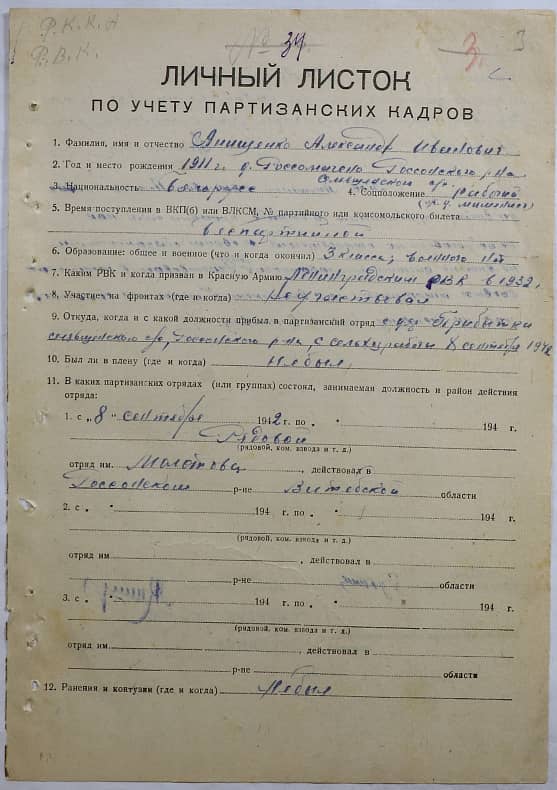 Р.К.К.А
Р.В.К.
№ 34.
3
3
ЛИЧНЫЙ ЛИСТОК
ПО УЧЕТУ ПАРТИЗАНСКИХ КАДРОВ
1. Фамилия, имя и отчество Янищенко Александр Иванович
2. Год и место рождения 1911 г. д. Россомачено Россонского р-на
3. Национальность белорусс 4. Соцположение рабочий
5. Время поступления в ВКП(б) или ВЛКСМ, № партийного или комсомольского билета
беспартийной
6. Образование: общее и военное (что и когда окончил) 3 класса, военного нет
7. Каким РВК и когда призван в Красную Армию Ленинградским РВК в 1932г.
8. Участие на фронтах (где и когда) Не участвовал
9. Откуда, когда и с какой должности прибыл в партизанский отряд с д.
Россонского р-на, с сельхоз работы 8 сентября 1942
10. Был ли в плену (где и когда) Не был,
11. В каких партизанских отрядах (или группах) состоял, занимаемая должность и район действия
отряда:
1. с „8" сентября 1942 г. по „ " 194 г.
Рядовой
(рядовой, ком. взвода и т. д.)
отряд им. Молотова, действовал в
Россонском р-не Витебской области
2. с „ " 194 г. по „ " 194 г.
(рядовой, ком. взвода и т. д.)
отряд им. , действовал в
р-не области
3. с „ " 194 г. по „ " 194 г.
(рядовой, ком. взвода и т. д.)
отряд им. , действовал в
р-не области
12. Ранения и контузии (где и когда) Не был